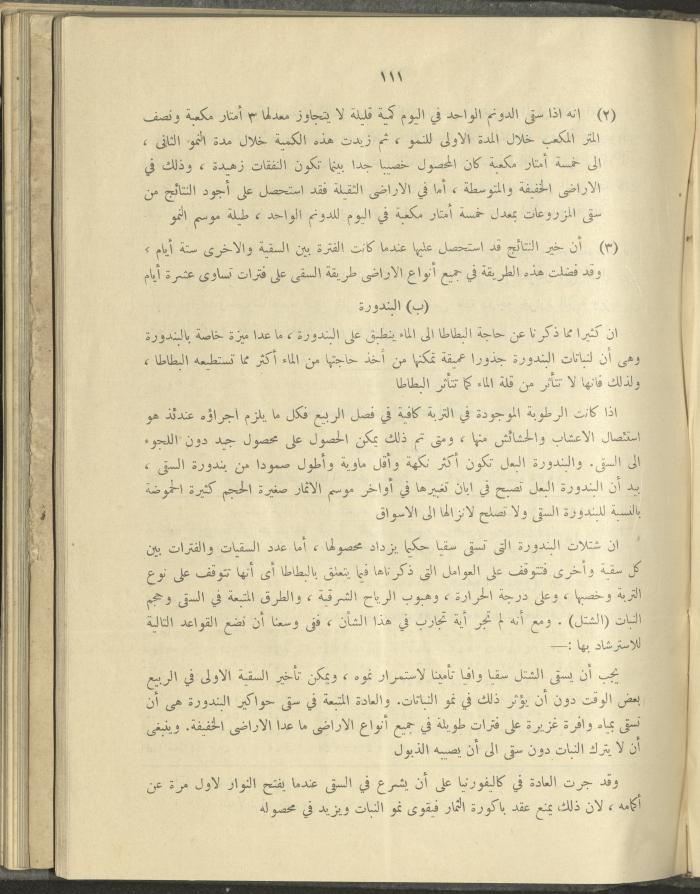 ١١١
(٢) انه اذا سقى الدونم الواحد في اليوم كمية قليلة لا يتجاوز معدلها ٣ أمتار مكعبة ونصف
المتر المكعب خلال المدة الاولى للنمو ، ثم زيدت هذه الكمية خلال مدة النمو الثانى ،
الى خمسة أمتار مكعبة كان المحصول خصيبا جدا بينما تكون النفقات زهيدة ، وذلك في
الاراضى الخفيفة والمتوسطة ، أما في الاراضى الثقيلة فقد استحصل على أجود النتائج من
سقى المزروعات بمعدل خمسة أمتار مكعبة في اليوم للدونم الواحد ، طيلة موسم النمو
(٣) أن خير النتائج قد استحصل عليها عندما كانت الفترة بين السقية والاخرى ستة أيام ،
وقد فضلت هذه الطريقة في جميع أنواع الاراضى طريقة السقى على فترات تساوى عشرة أيام
(ب) البندورة
ان كثيرا مما ذكرنا عن حاجة البطاطا الى الماء ينطبق على البندورة ، ما عدا ميزة خاصة بالبندورة
وهى أن لنباتات البندورة جذورا عميقة تمكنها من أخذ حاجتها من الماء أكثر مما تستطيعه البطاطا ،
ولذلك فانها لا تتأثر من قلة الماء كما تتأثر البطاطا
اذا كانت الرطوبة الموجودة في التربة كافية في فصل الربيع فكل ما يلزم اجراؤه عندئذ هو
استئصال الاعشاب والحشائش منها ، ومتى تم ذلك يمكن الحصول على محصول جيد دون اللجوء
الى السقى. والبندورة البعل تكون أكثر نكهة وأقل ماوية وأطول صمودا من بندورة السقى ،
بيد أن البندورة البعل تصبح في ابان تغييرها في أواخر موسم الاثمار صغيرة الحجم كثيرة الحموضة
بالنسبة للبندورة السقى ولا تصلح لانزالها الى الاسواق
ان شتلات البندورة التى تسقى سقيا حكيما يزداد محصولها ، أما عدد السقيات والفترات بين
كل سقية وأخرى فتتوقف على العوامل التى ذكرناها فيما يتعلق بالبطاطا أى أنها تتوقف على نوع
التربة وخصبها ، وعلى درجة الحرارة ، وهبوب الرياح الشرقية ، والطرق المتبعة في السقى وحجم
النبات (الشتل) . ومع أنه لم تجر أية تجارب في هذا الشأن ، ففى وسعنا أن نضع القواعد التالية
للاسترشاد بها :—
يجب أن يسقى الشتل سقيا وافيا تأمينا لاستمرار نموه ، ويمكن تأخير السقية الاولى في الربيع
بعض الوقت دون أن يؤثر ذلك في نمو النباتات. والعادة المتبعة في سقى حواكير البندورة هى أن
تسقى بمياه وافرة غزيرة على فترات طويلة في جميع أنواع الاراضى ما عدا الاراضى الخفيفة. وينبغى
أن لا يترك النبات دون سقى الى أن يصيبه الذبول
وقد جرت العادة في كاليفورنيا على أن يشرع في السقى عندما يفتح النوار لاول مرة عن
أكمامه ، لان ذلك يمنع عقد باكورة الثمار فيقوى نمو النبات ويزيد في محصوله